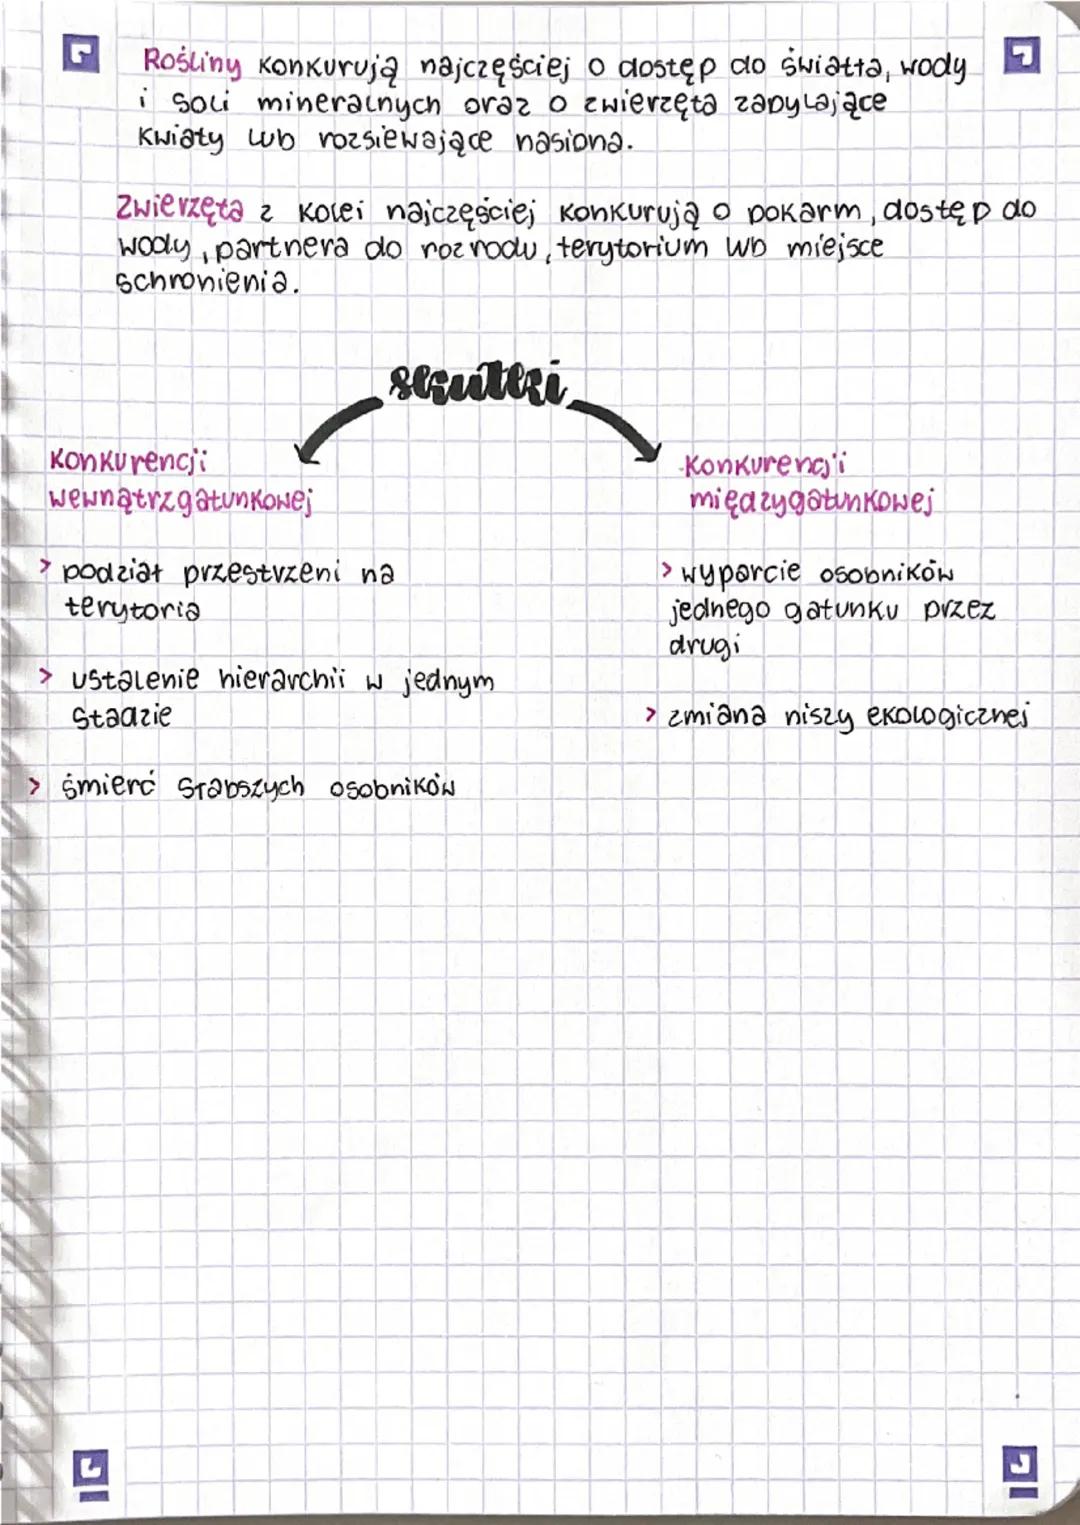 Rośliny konkurują najczęściej o dostęp do światła, wody
i soli mineralnych oraz o zwierzęta zapylające
kwiaty lub rozsiewające nasiona.
Zwierzęta z kolei najczęściej konkurują o pokarm, dostęp do
wody, partnera do rozrodu, terytorium lub miejsce
schronienia.
skutki
konkurencji
wewnątrzgatunkowej
> podział przestrzeni na
terytoria
> ustalenie hierarchii w jednym
stadzie
> śmierć słabszych osobników
konkurencji
międzygatunkowej
> wyparcie osobników
jednego gatunku przez
drugi
> zmiana niszy ekologicznej